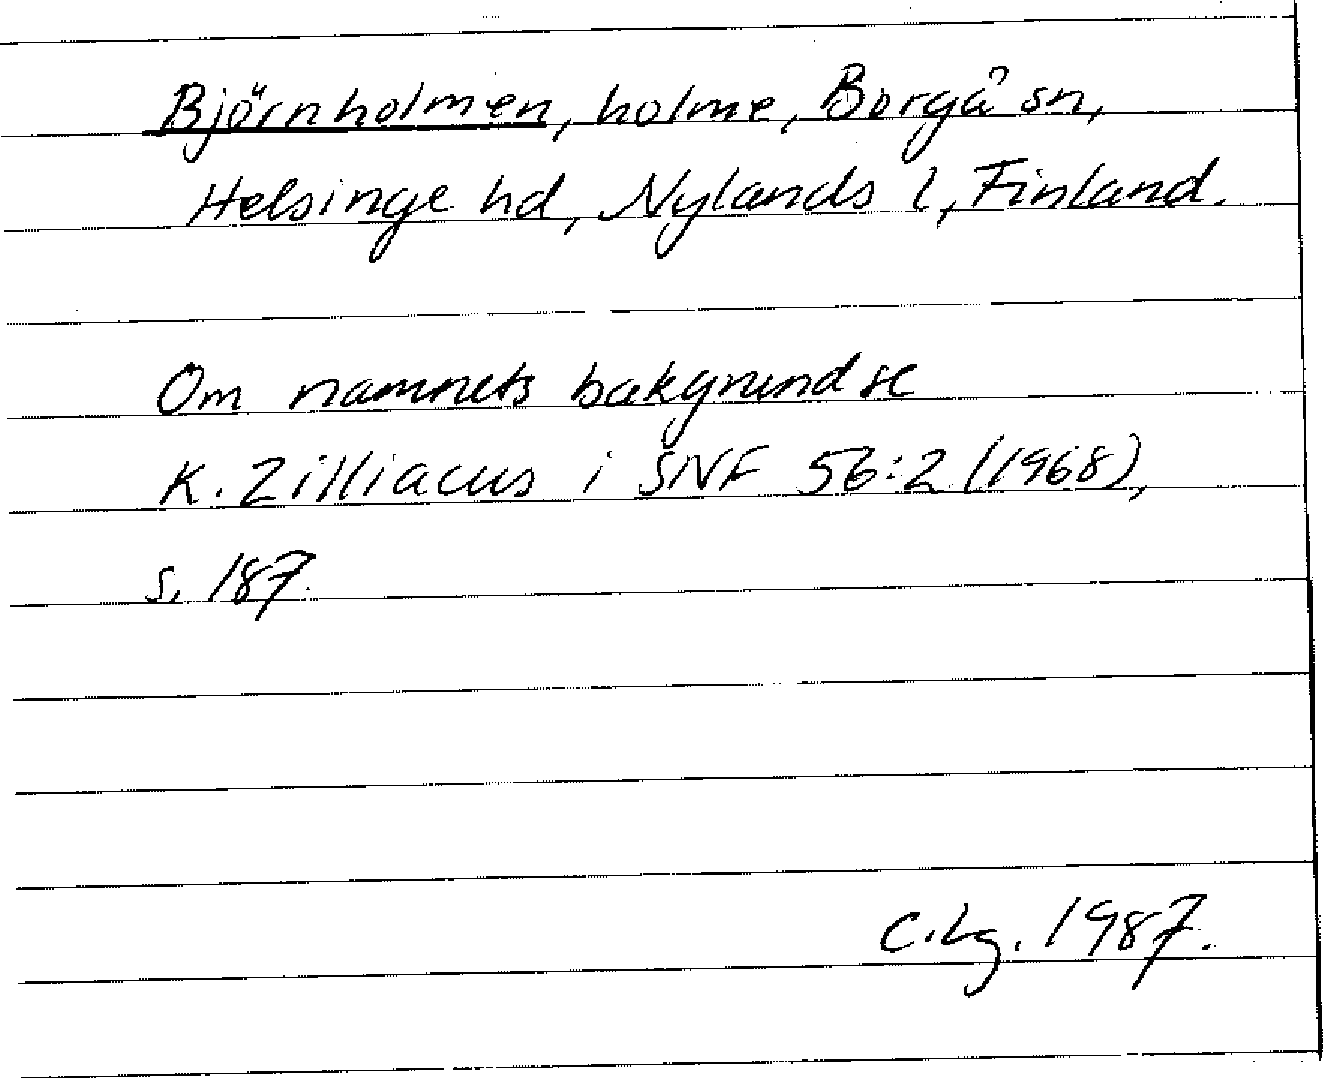 Björnholmen, holme, Borgå sn,
Helsinge hd, Nylands l, Finland.
Om namnets bakgrund se
K. Zilliacus i SNF 56:2 (1968),
s. 187.
C.Lg. 1987.